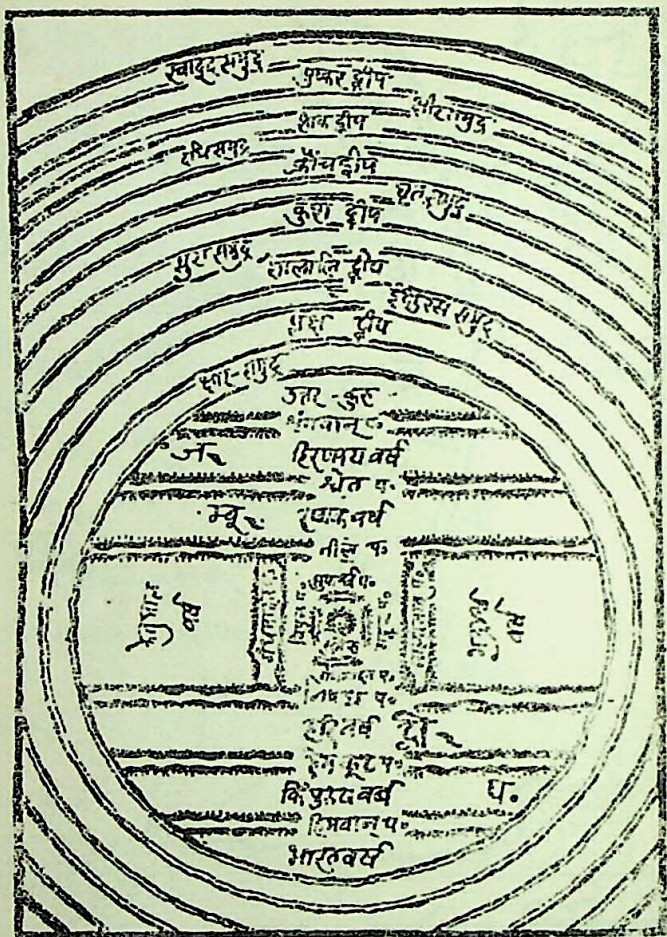 स्वादूद समुद्र
पुष्कर द्वीप
क्षीर समुद्र
शाक द्वीप
दधि समुद्र
क्रौंच द्वीप
घृत समुद्र
कुश द्वीप
सुरा समुद्र
शाल्मलि द्वीप
इक्षुरस समुद्र
प्लक्ष द्वीप
क्षार-समुद्र
उत्तर-कुरु
शृंगवान् प॰
जं
हिरण्मय वर्ष
श्वेत प॰
म्बू
रम्यक वर्ष
नील प॰
सुपार्श्व प॰
केतुमाल वर्ष
भद्राश्व वर्ष
निषध प॰
हरि वर्ष
द्वी
हेमकूट प॰
किंपुरुष वर्ष
प॰
हिमवान् प॰
भारतवर्ष